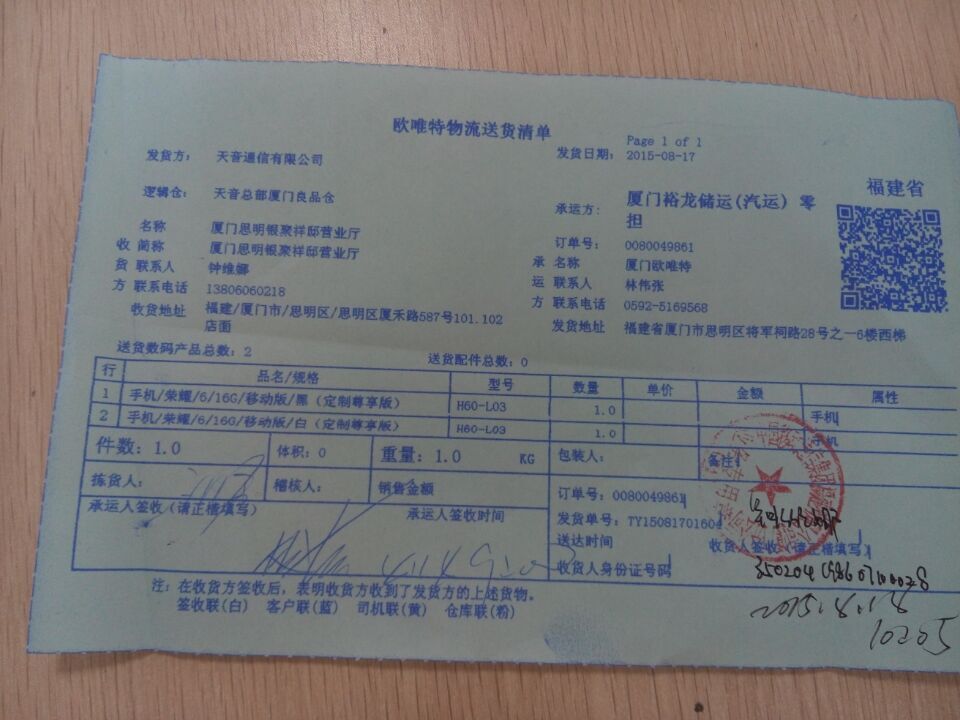 欧唯特物流送货清单
Page 1 of 1
发货方： 天音通信有限公司
发货日期： 2015-08-17
逻辑仓： 天音总部厦门良品仓
承运方： 厦门裕龙储运(汽运) 零担
福建省
收货方
名称 厦门思明银聚祥邸营业厅
简称 厦门思明银聚祥邸营业厅
联系人 钟维娜
联系电话 13806060218
收货地址 福建/厦门市/思明区/思明区厦禾路587号101.102
店面
订单号： 0080049861
承运方
名称 厦门欧唯特
联系人 林伟张
联系电话 0592-5169568
发货地址 福建省厦门市思明区将军祠路28号之一6楼西梯
送货数码产品总数：2 送货配件总数：0
行 品名/规格 型号 数量 单价 金额 属性
1 手机/荣耀/6/16G/移动版/黑（定制尊享版） H60-L03 1.0 手机
2 手机/荣耀/6/16G/移动版/白（定制尊享版） H60-L03 1.0 手机
件数：1.0 体积：0 重量：1.0 KG 包装人： 备注：
拣货人： 稽核人： 销售金额
承运人签收（请正楷填写） 承运人签收时间
订单号：0080049861
发货单号：TY15081701604
送达时间 收货人签收（请正楷填写）
收货人身份证号码
2015.8.18
10205
注：在收货方签收后，表明收货方收到了发货方的上述货物。
签收联(白) 客户联(蓝) 司机联(黄) 仓库联(粉)